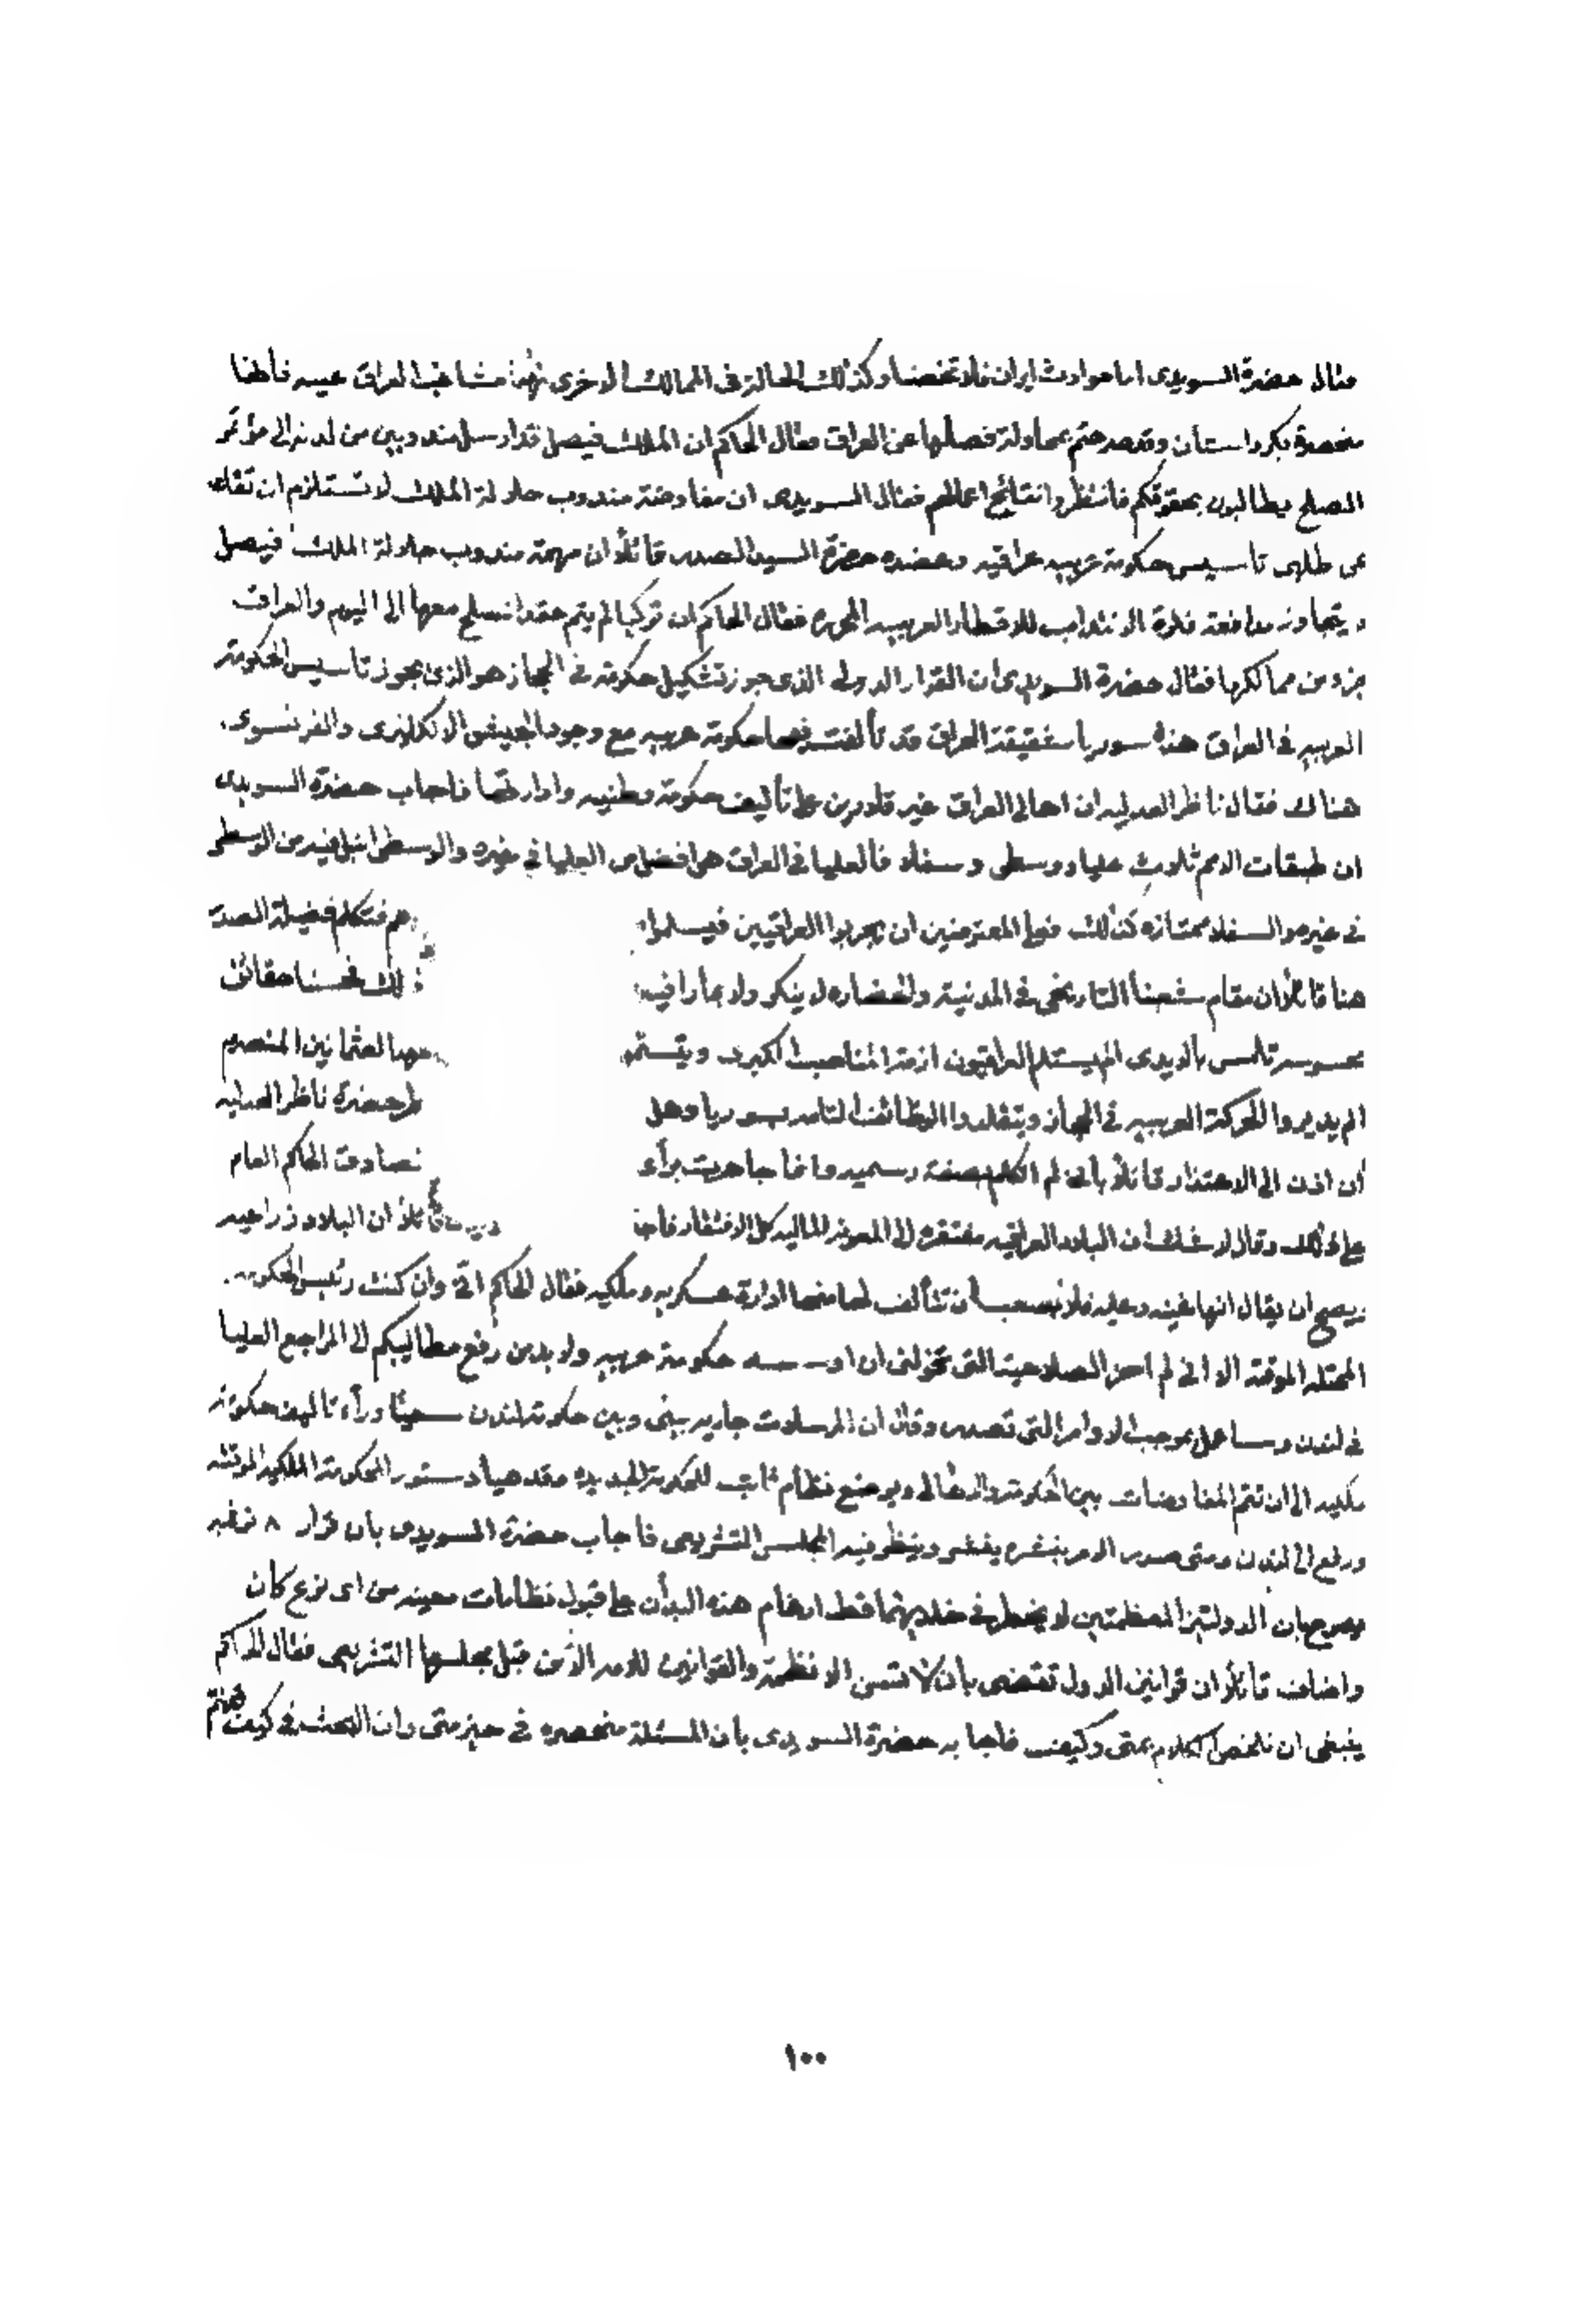 فقال حضرة السويدى اما حوادث ايران فلا تخصنا وكذلك الحالة فى الممالك الاخرى مشاغب العراق
منحصرة بكردستان وقد صرحتم بمحاولة فصلها عن العراق فقال الحاكم ان الملك فيصل قد ارسل مندوبين من لدنه الى مؤتمر
الصلح يطالبون بحقوقكم فانتظروا نتائج اعمالهم فقال السويدى ان مفاوضة مندوب جلالة الملك لا تستلزم ان
عن طلب تأسيس حكومة عربيه عراقيه وعضده حضرة السيد الصدر قائلاً ان مهمة مندوب جلالة الملك فيصل
مدافعة فكرة الانتداب للاقطار العربيه المحرره فقال الحاكم ان تركيا لم يتم عقد الصلح معها الى اليوم والعراق
جزء من ممالكها فقال حضرة السويدى ان القرار الدولى الذى جوز تشكيل حكومة فى الحجاز هو الذى يجوز تأسيس الحكومة
العربيه فى العراق هذه سوريا شقيقة العراق قد تألفت فيها حكومة عربيه مع وجود الجيش الانكليزى والفرنسوى
هناك فقال ناظر العدليه ان اهالى العراق غير قادرين على تأليف حكومة وطنيه وادارتها فاجاب حضرة السويدى
ان طبقات الامم ثلاث عليا ووسطى وسفلى فالعليا فى العراق هى افضل من العليا فى غيره والوسطى انبل فيه من الوسطى
فى غيره والسفلا ممتازه كذلك فعلى المعترضين ان يجربوا العراقيين فتكلم فضيلة الصدر
هنا قائلاً ان مقام شعبنا التاريخى فى المدنية والحضاره لا ينكر ولا يمارا فيه ذلك حقائق
محسوسة تلمس بالايدى الم يستلم العراقيون ازمة المناصب الكبرى العثمانيين المنصرم
الم يديروا الحركة العربيه فى الحجاز ويتقلدوا الوظائف بسوريا وهل حضرة ناظر العدليه
الى الاعتذار قائلاً بأنى لم اتكلم بصفة رسميه وانما جاهرت برأى فصادق الحاكم العام
على ذلك وقال لا شك أن البلاد العراقيه مفتقره الى المعونة الماليه كل الافتقار قائلاً ان البلاد زراعيه
ويصح ان يقال انها غنيه وعليه فلا يصعب أن تتألف لها منها ادارة عسكريه وملكيه فقال الحاكم انى وان كنت رئيس الحكومه
المحتله الموقتة الا انى لم احز الصلاحية التى تخولنى ان اؤسس حكومة عربيه ولا بد من رفع مطاليبكم الى المراجع العليا
فى لندن وساعمل بموجب الاوامر التى تصدر وقال ان المراسلات جاريه بينى وبين حكومة لندن سعياً وراء تأليف حكومة
ملكيه الى ان تتم المفاوضات بين الحكومة والاهالى ويوضع نظام ثابت للحكومة الجديده وقد هيأ دستور الحكومة الملكيه الموقته
ورفع الى لندن ومتى صدر الامر بنشره ينشر وينظر فيه المجلس التشريعى فاجاب حضرة السويدى بان قرار ٨ نوفمبر
مصرح بان الدولتين العظمتين لا يخطر فى خلديهما قط ارغام هذه البلدان على قبول نظامات معينه من اى نوع كان
واضاف قائلاً ان قوانين الدول تقتضى بان لا تسن الانظمة والقوانين للامم الا من قبل مجلسها التشريعى فقال الحاكم
ينبغى ان نلخص الكلام بمتى وكيف فاجابه حضرة السويدى بأن المسئلة منحصره فى حيز متى وان البحث فى كيف
١٠٠